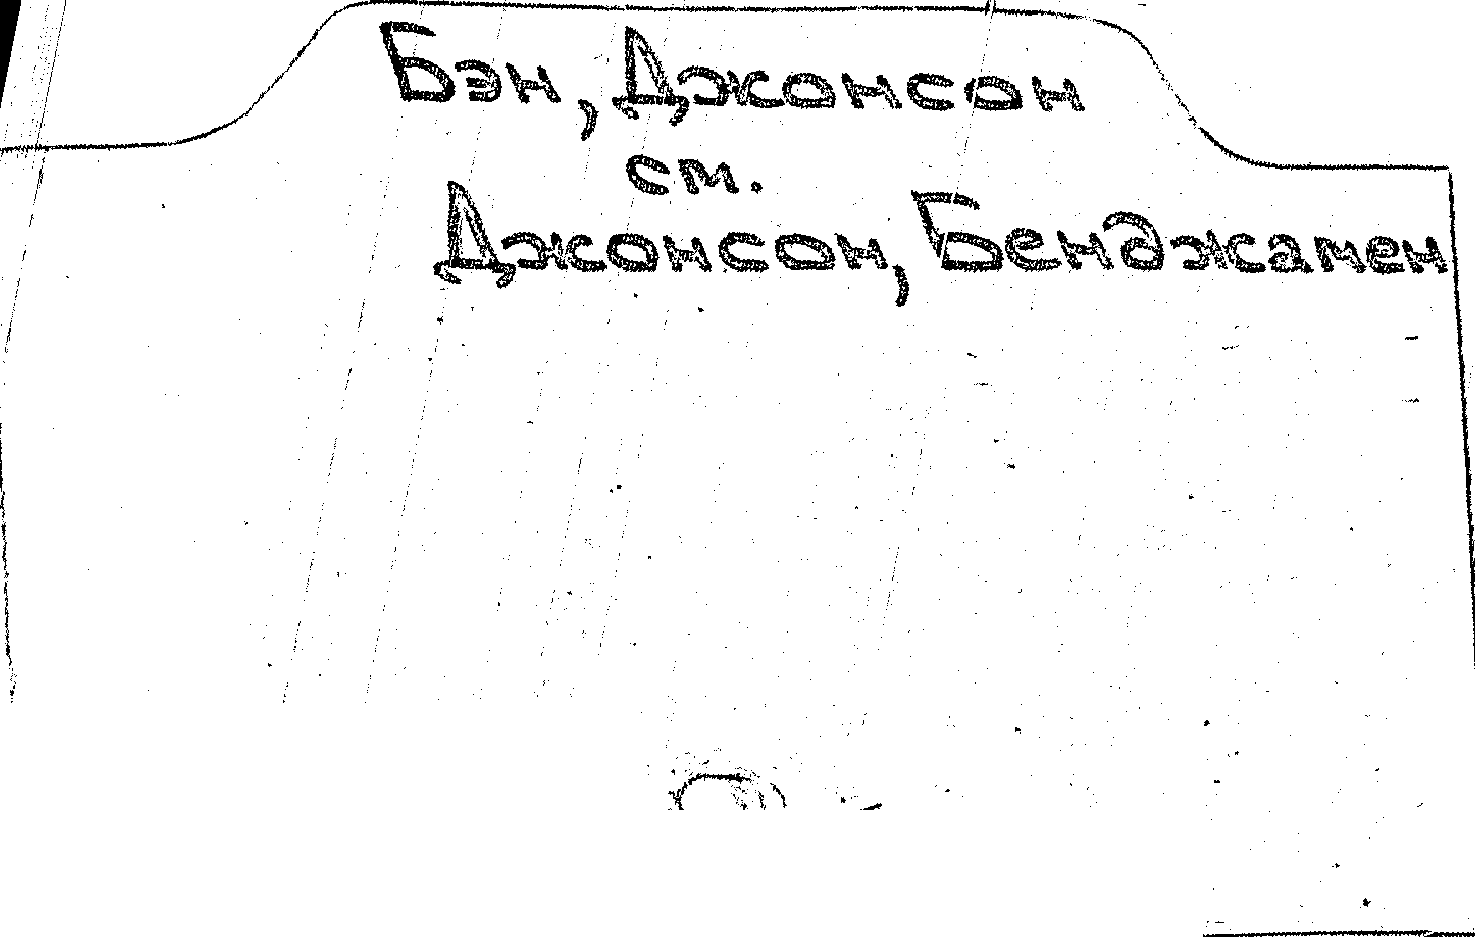 Бэн, Джонсон
см.
Джонсон, Бенджамен